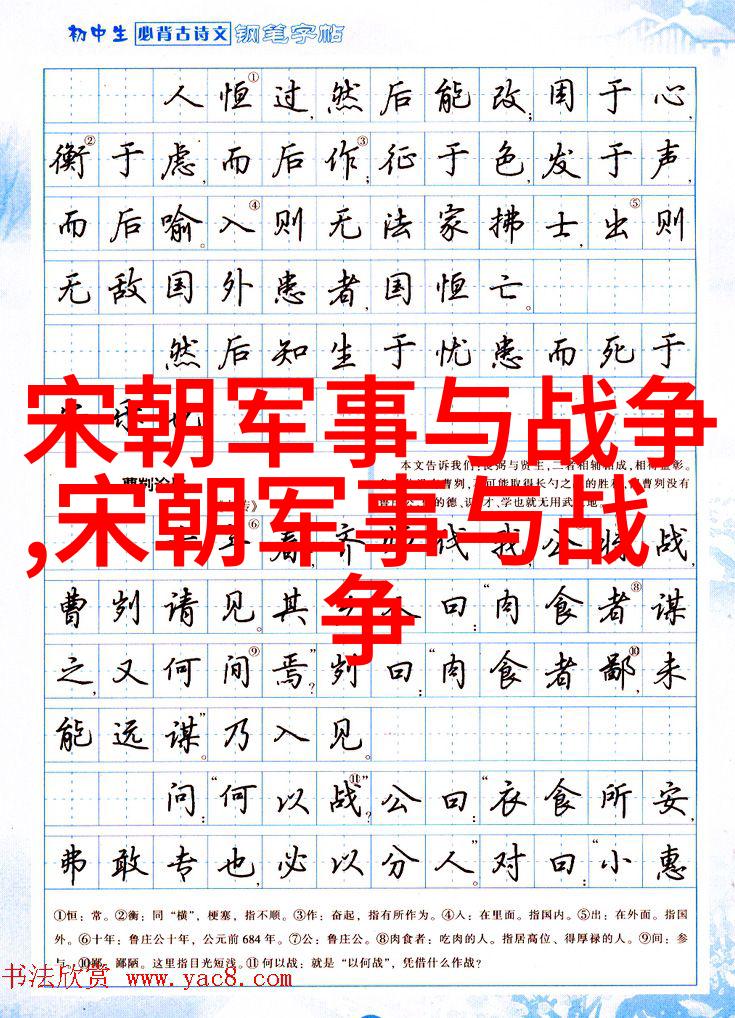 初中生 必背古诗文 钢笔字帖
人恒①过,然后能改;困于心,
衡②于虑,而后作③;征于色,发于声,
而后喻。入④则无法家拂士,出⑤则
无敌国外患者,国恒亡。
然后知生于忧患而死于
宋朝军事与战争
,宋朝军事与战
争
本文告诉我们:
⑥
伐我,公将战,
曹刿请见。其
曰:“肉食者⑧谋
之,又何间⑨焉?”刿曰:“肉食者鄙⑩,未
能远谋。”乃入见。
问:“何以战⑪?”公曰:“衣食所安,
弗敢专也,必以分人。”对曰:“小惠
①恒:常。②衡:同“横”,梗塞,指不顺。③作:奋起,指有所作为。④入:在里面。指国内。⑤出:在外面。指国
外。⑥十年:鲁庄公十年,公元前684年。⑦公:鲁庄公。⑧肉食者:吃肉的人。指居高位、得厚禄的人。⑨间:参
与。⑩鄙:鄙陋。这里指目光短浅。⑪何以战:就是“以何战”,凭借什么作战?
书法欣赏 www.yac8.com